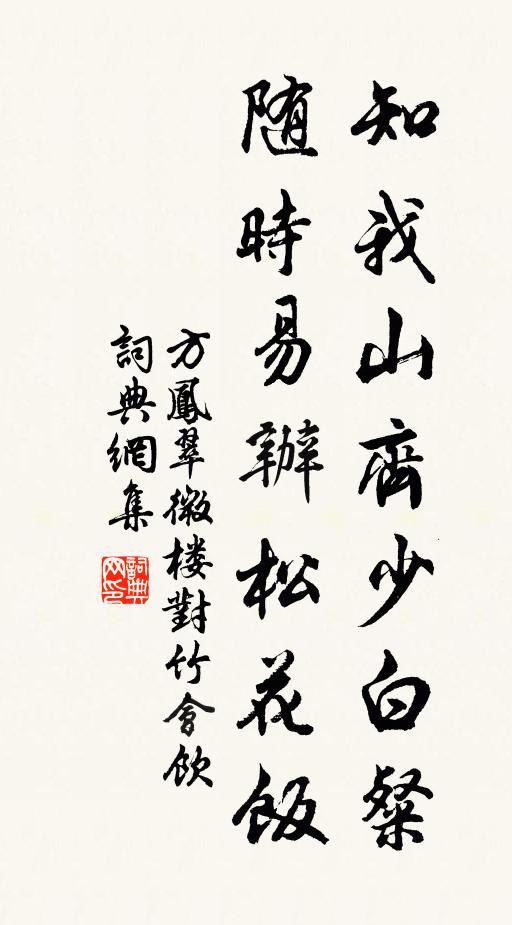 知我山齋少白粲
随時易辦松花飯
方鳳翠微楼對竹會飲
詞典網集
詞典网印